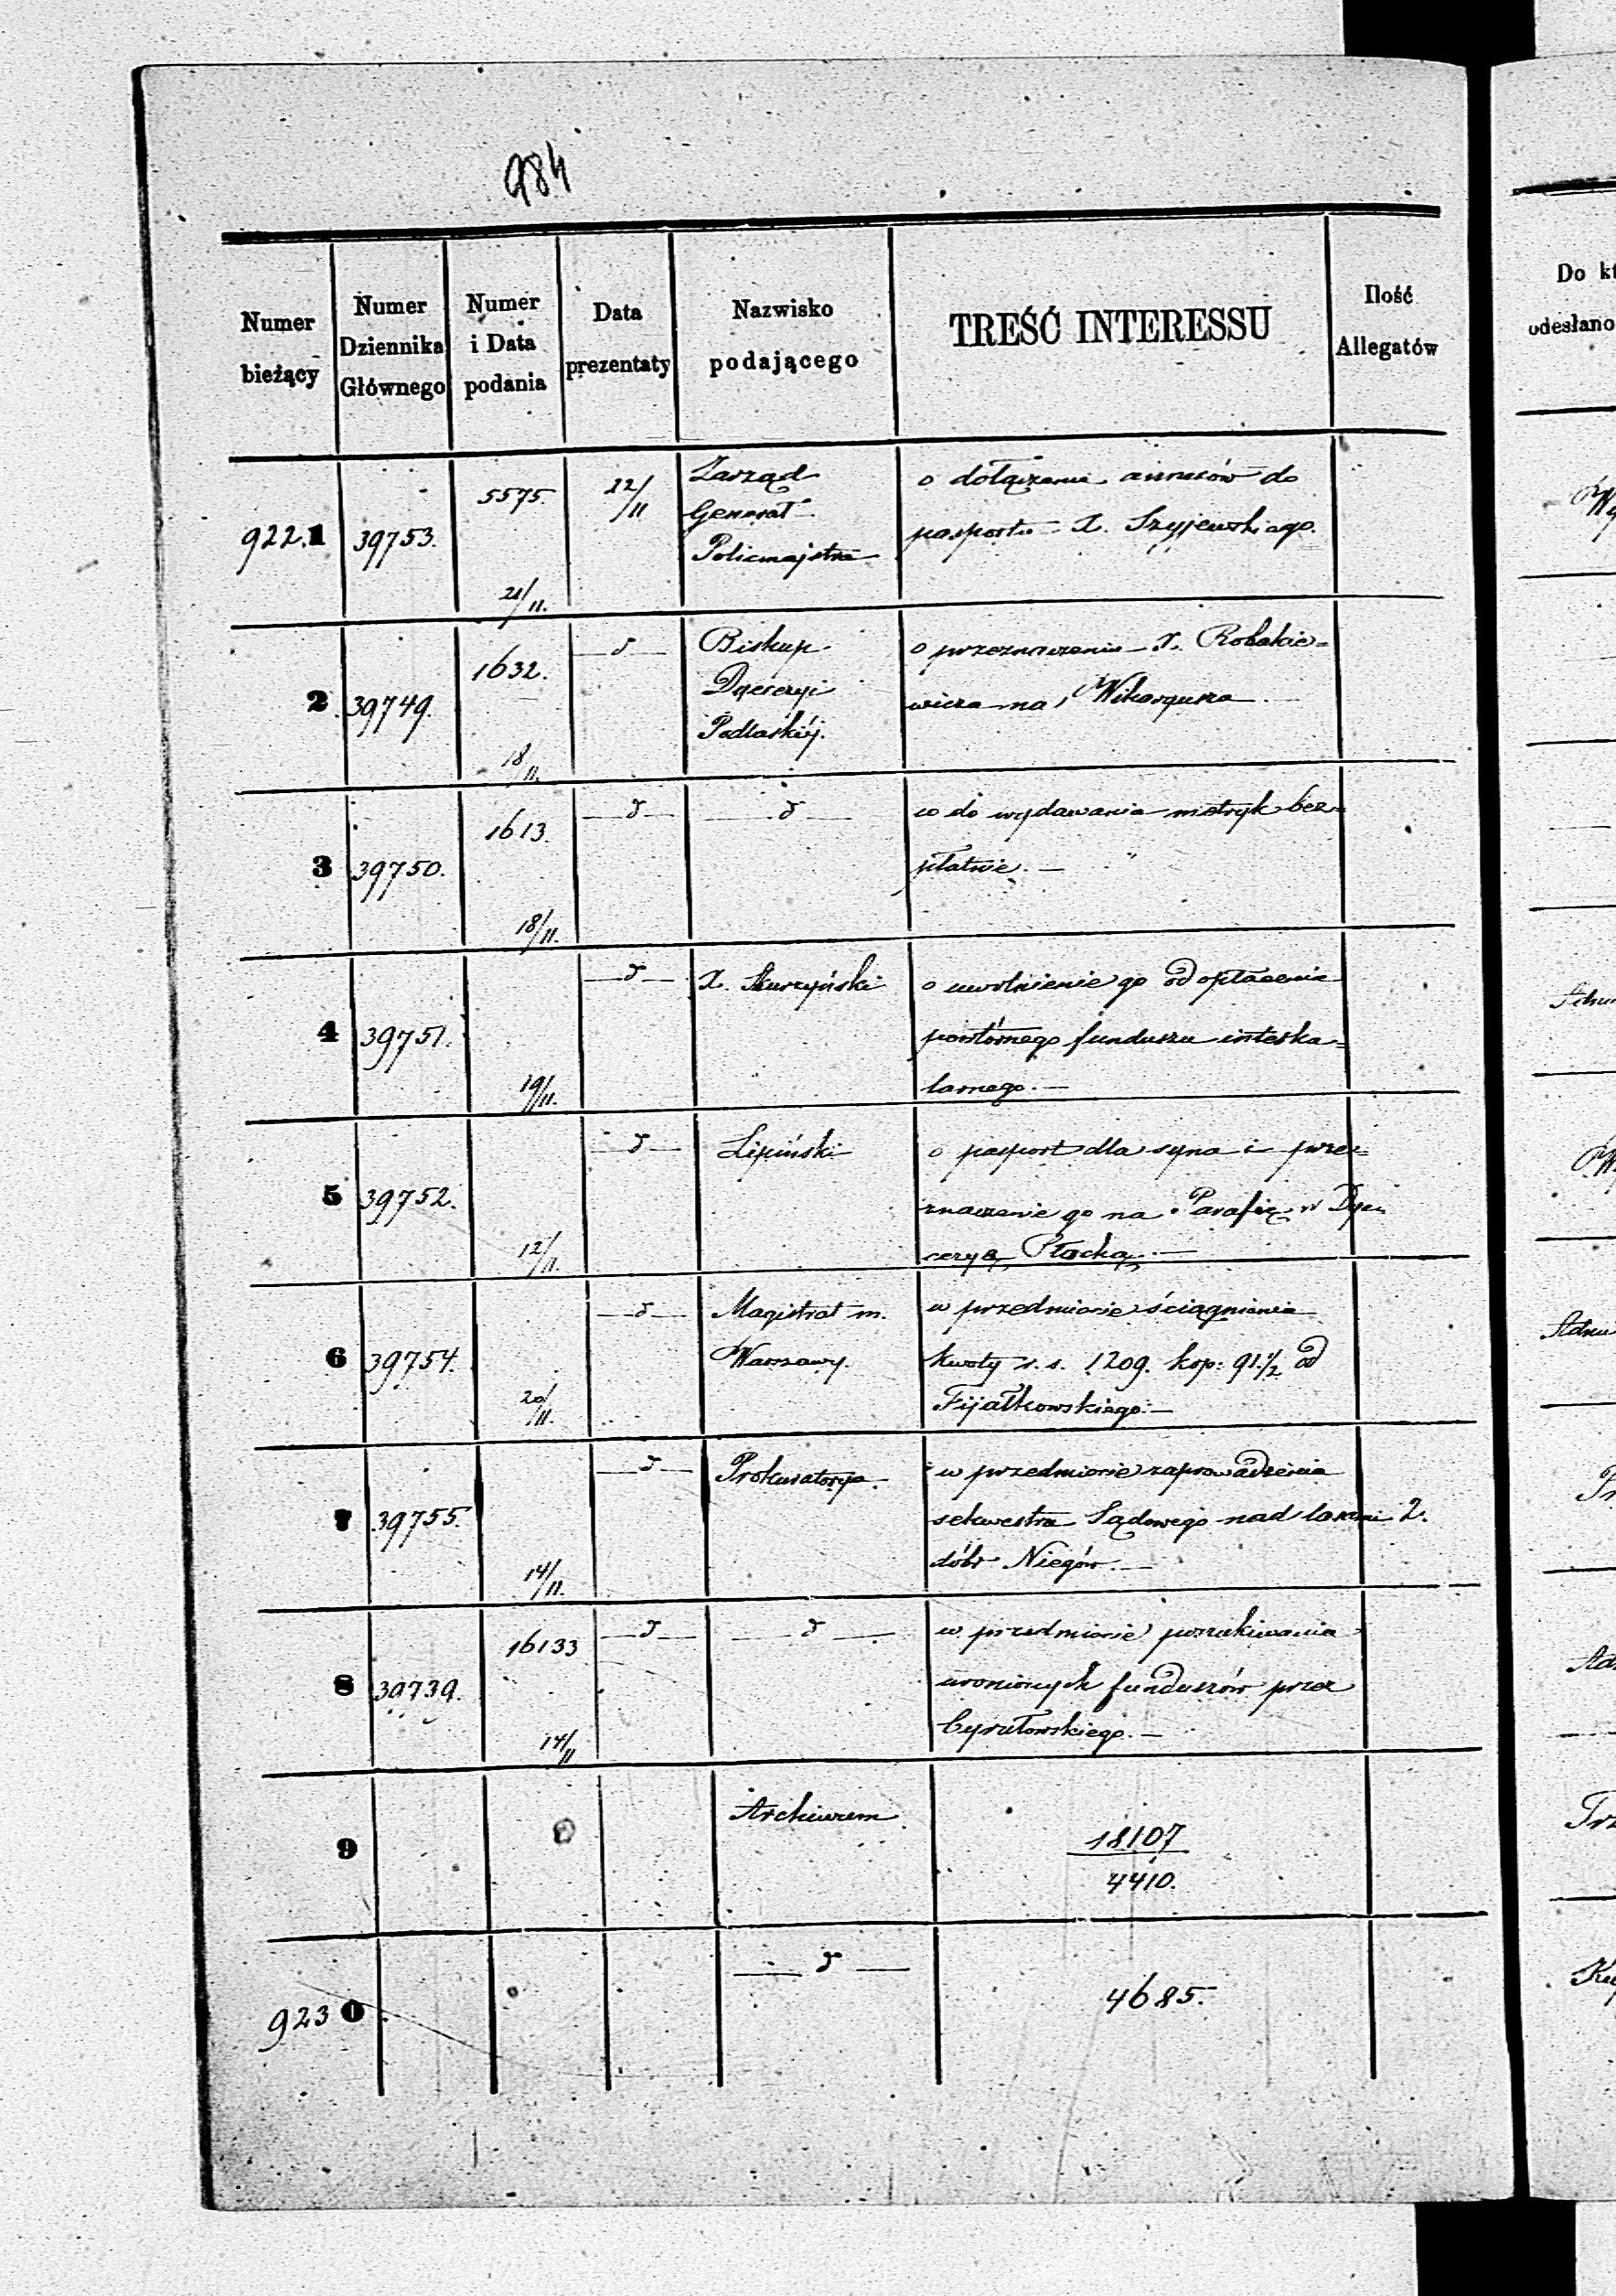 984
Numer bieżący
Numer Dziennika Głównego
Numer i Data podania
Data prezentaty
Nazwisko podającego
TREŚĆ INTERESSU
Ilość Allegatów
Do kt
odesłano
922.1 39753. 5575. 21/11. 22/11
Zarząd
Generał
Policmajstra
o dołączenie do
pasportu X. Szyjewskiego.
2 39749. 1632. 18/11. d
Biskup
Dyecezyi
Podlaskiéj.
o przeznaczenie X. Robakie=
wicza na Wikaryusza.
3 39750. 1613. 18/11. d
d
co do wydawania metryk bez=
płatnie. —
4 39751. 19/11. d
X.
o uwolnienie go od opłacenia
powtórnego funduszu interka=
larnego. —
5 39752. 12/11. d
Lipiński
o pasport dla syna i prze=
znaczenie go na Parafię w Dye=
cezyą Płocką. —
6 39754. 20/11. d
Magistrat m.
Warszawy.
w przedmiocie ściągnienia
kwoty r. s. 1209. kop: 91 1/2 od
Fijałkowskiego. —
7 39755. 14/11. d
Prokuratorya.
w przedmiocie zaprowadzenia
sekwestra Sądowego nad lasami 2.
dóbr Niegów. —
8 39739. 16133 14/11 d
d
w przedmiocie poszukiwania
uronionych funduszów przez
Cyrułowskiego. —
9
Archiwum
18107
4410.
923 0
d
4685.